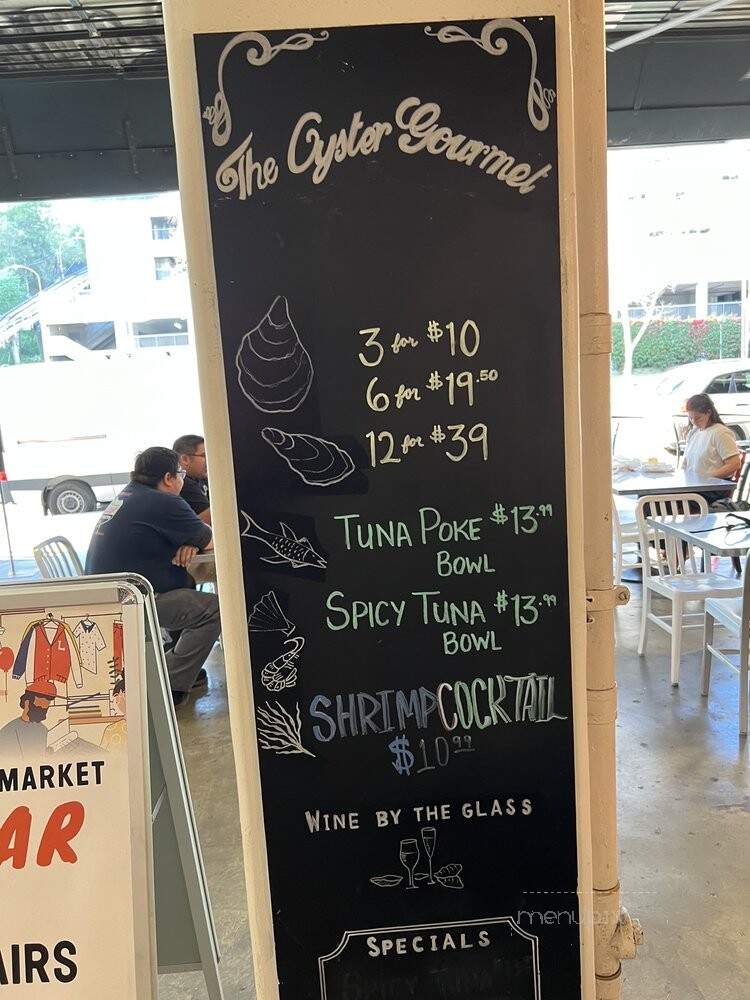 The Oyster Gourmet
3 for $10
6 for $19.50
12 for $39
TUNA POKE $13.99
BOWL
SPICY TUNA $13.99
BOWL
SHRIMP COCKTAIL
$10.99
WINE BY THE GLASS
SPECIALS
L
MARKET
AR
AIRS